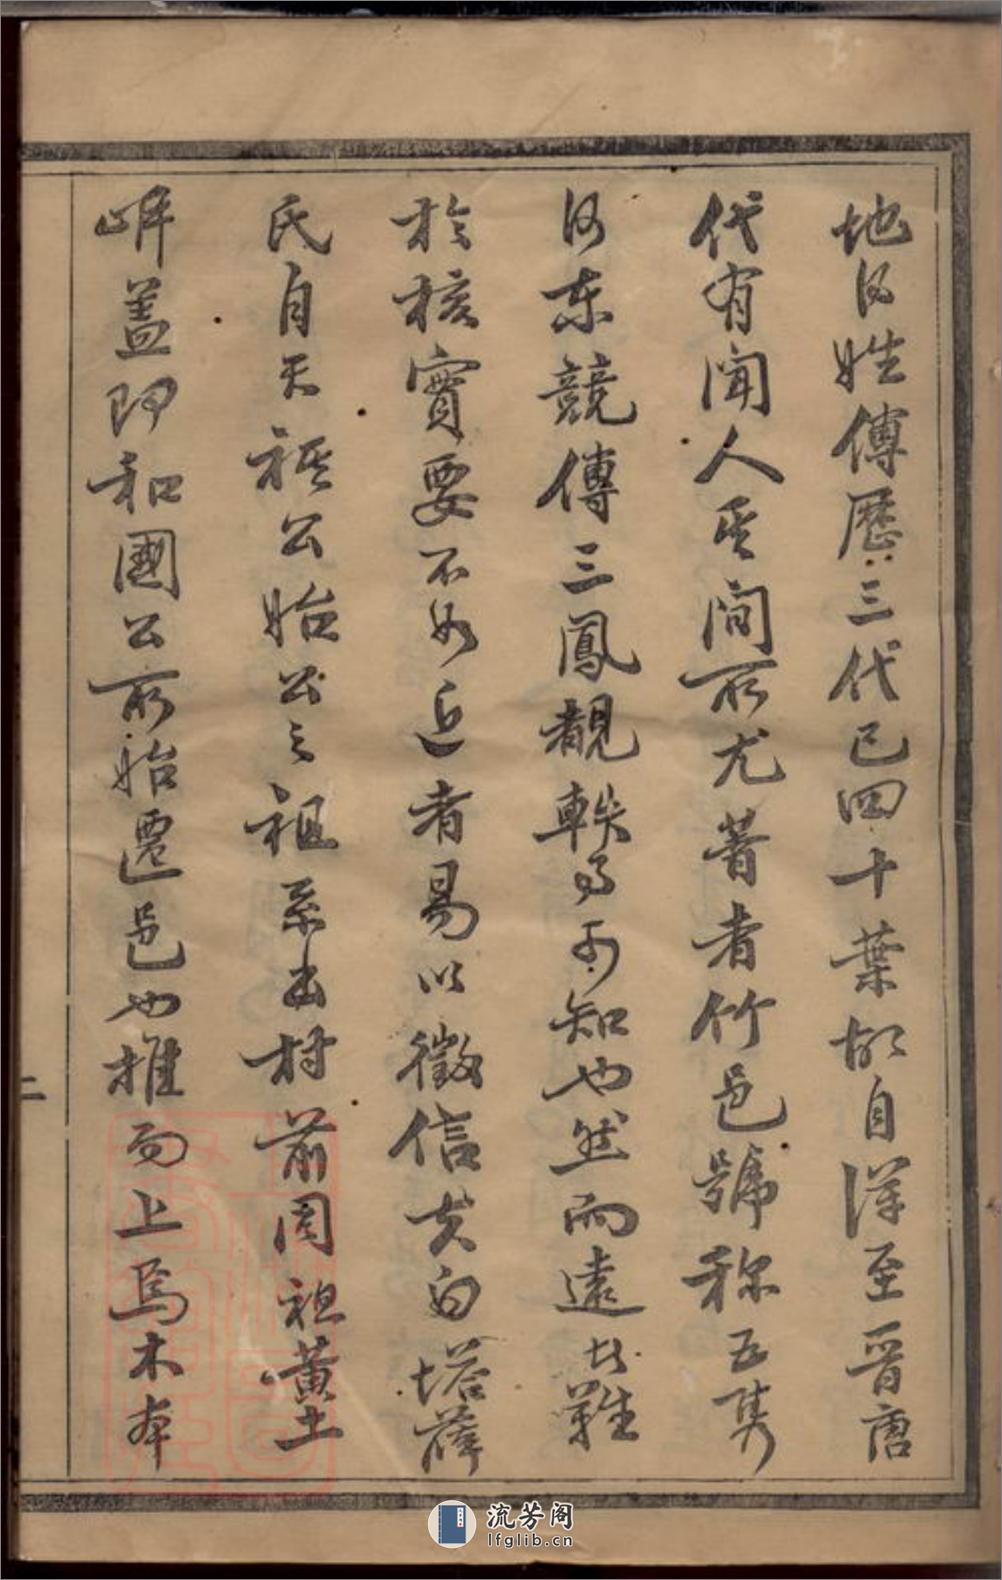 地得姓傳歷三代已四十葉故自漢至晉唐
代有聞人其間所尤著者竹邑號稱五雋
河東競傳三鳳觀軼事可知也然而遠者難
於核實要不如近者易以徵信夫白塔薛
氏自天祺公始公之祖系出村前周祖黃土
岸蓋即和國公所始遷邑也推而上焉木本
二
流芳阁
lfglib.cn